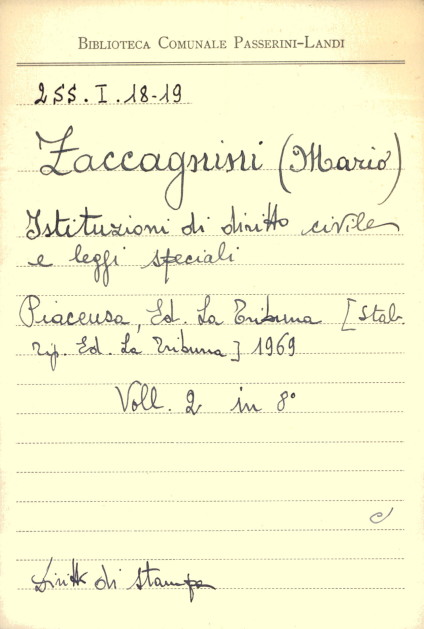 BIBLIOTECA COMUNALE PASSERINI-LANDI
2SS. I. 18-19
Zaccagnini (Mario)
Istituzioni di diritto civile
e leggi speciali
Piacenza, Ed. La Tribuna [Stab.
Tip. Ed. La Tribuna] 1969
Voll. 2 in 8°
Diritto di stampa